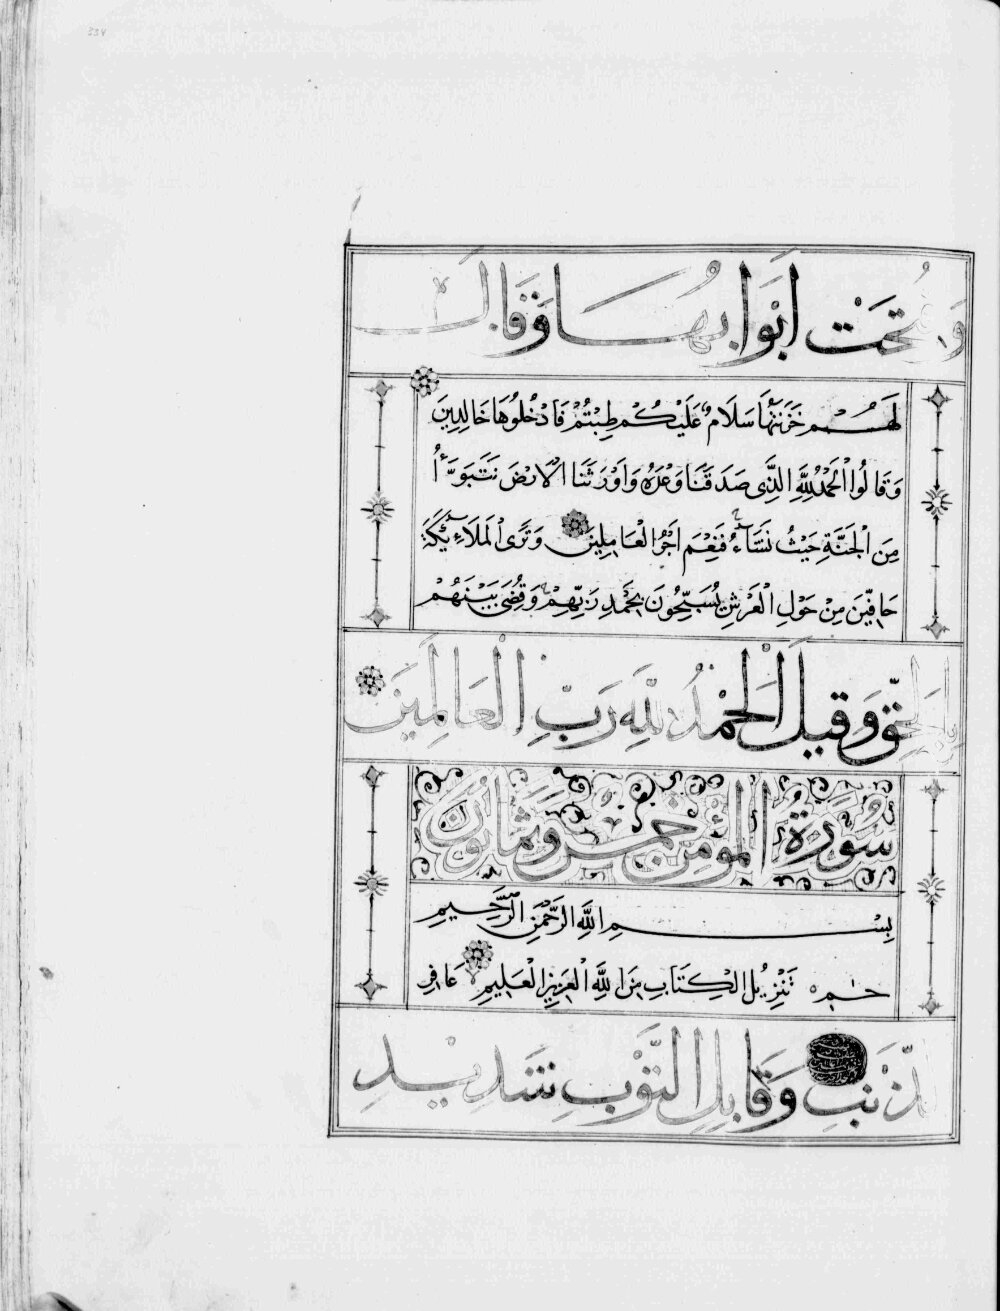 وَفُتِحَتْ اَبْوَابُهَا وَقَالَ
لَهُمْ خَزَنَتُهَا سَلَامٌ عَلَيْكُمْ طِبْتُمْ فَادْخُلُوهَا خَالِدِينَ
وَقَالُوا الْحَمْدُ لِلَّهِ الَّذِى صَدَقَنَا وَعْدَهُ وَاَوْرَثَنَا الْاَرْضَ نَتَبَوَّءُا
مِنَ الْجَنَّةِ حَيْثُ نَشَاۤءُ فَنِعْمَ اَجْرُ الْعَامِلِينَ وَتَرَى الْمَلَاۤئِكَةَ
حَافِّينَ مِنْ حَوْلِ الْعَرْشِ يُسَبِّحُونَ بِحَمْدِ رَبِّهِمْ وَقُضِىَ بَيْنَهُمْ
بِالْحَقِّ وَقِيلَ الْحَمْدُ لِلَّهِ رَبِّ الْعَالَمِينَ
سُورَةُ الْمُؤْمِنِ خَمْسٌ وَثَمَانُونَ
بِسْمِ اللَّهِ الرَّحْمٰنِ الرَّحِيمِ
حٰم تَنْزِيلُ الْكِتَابِ مِنَ اللَّهِ الْعَزِيزِ الْعَلِيمِ غَافِرِ
الذَّنْبِ وَقَابِلِ التَّوْبِ شَدِيدِ